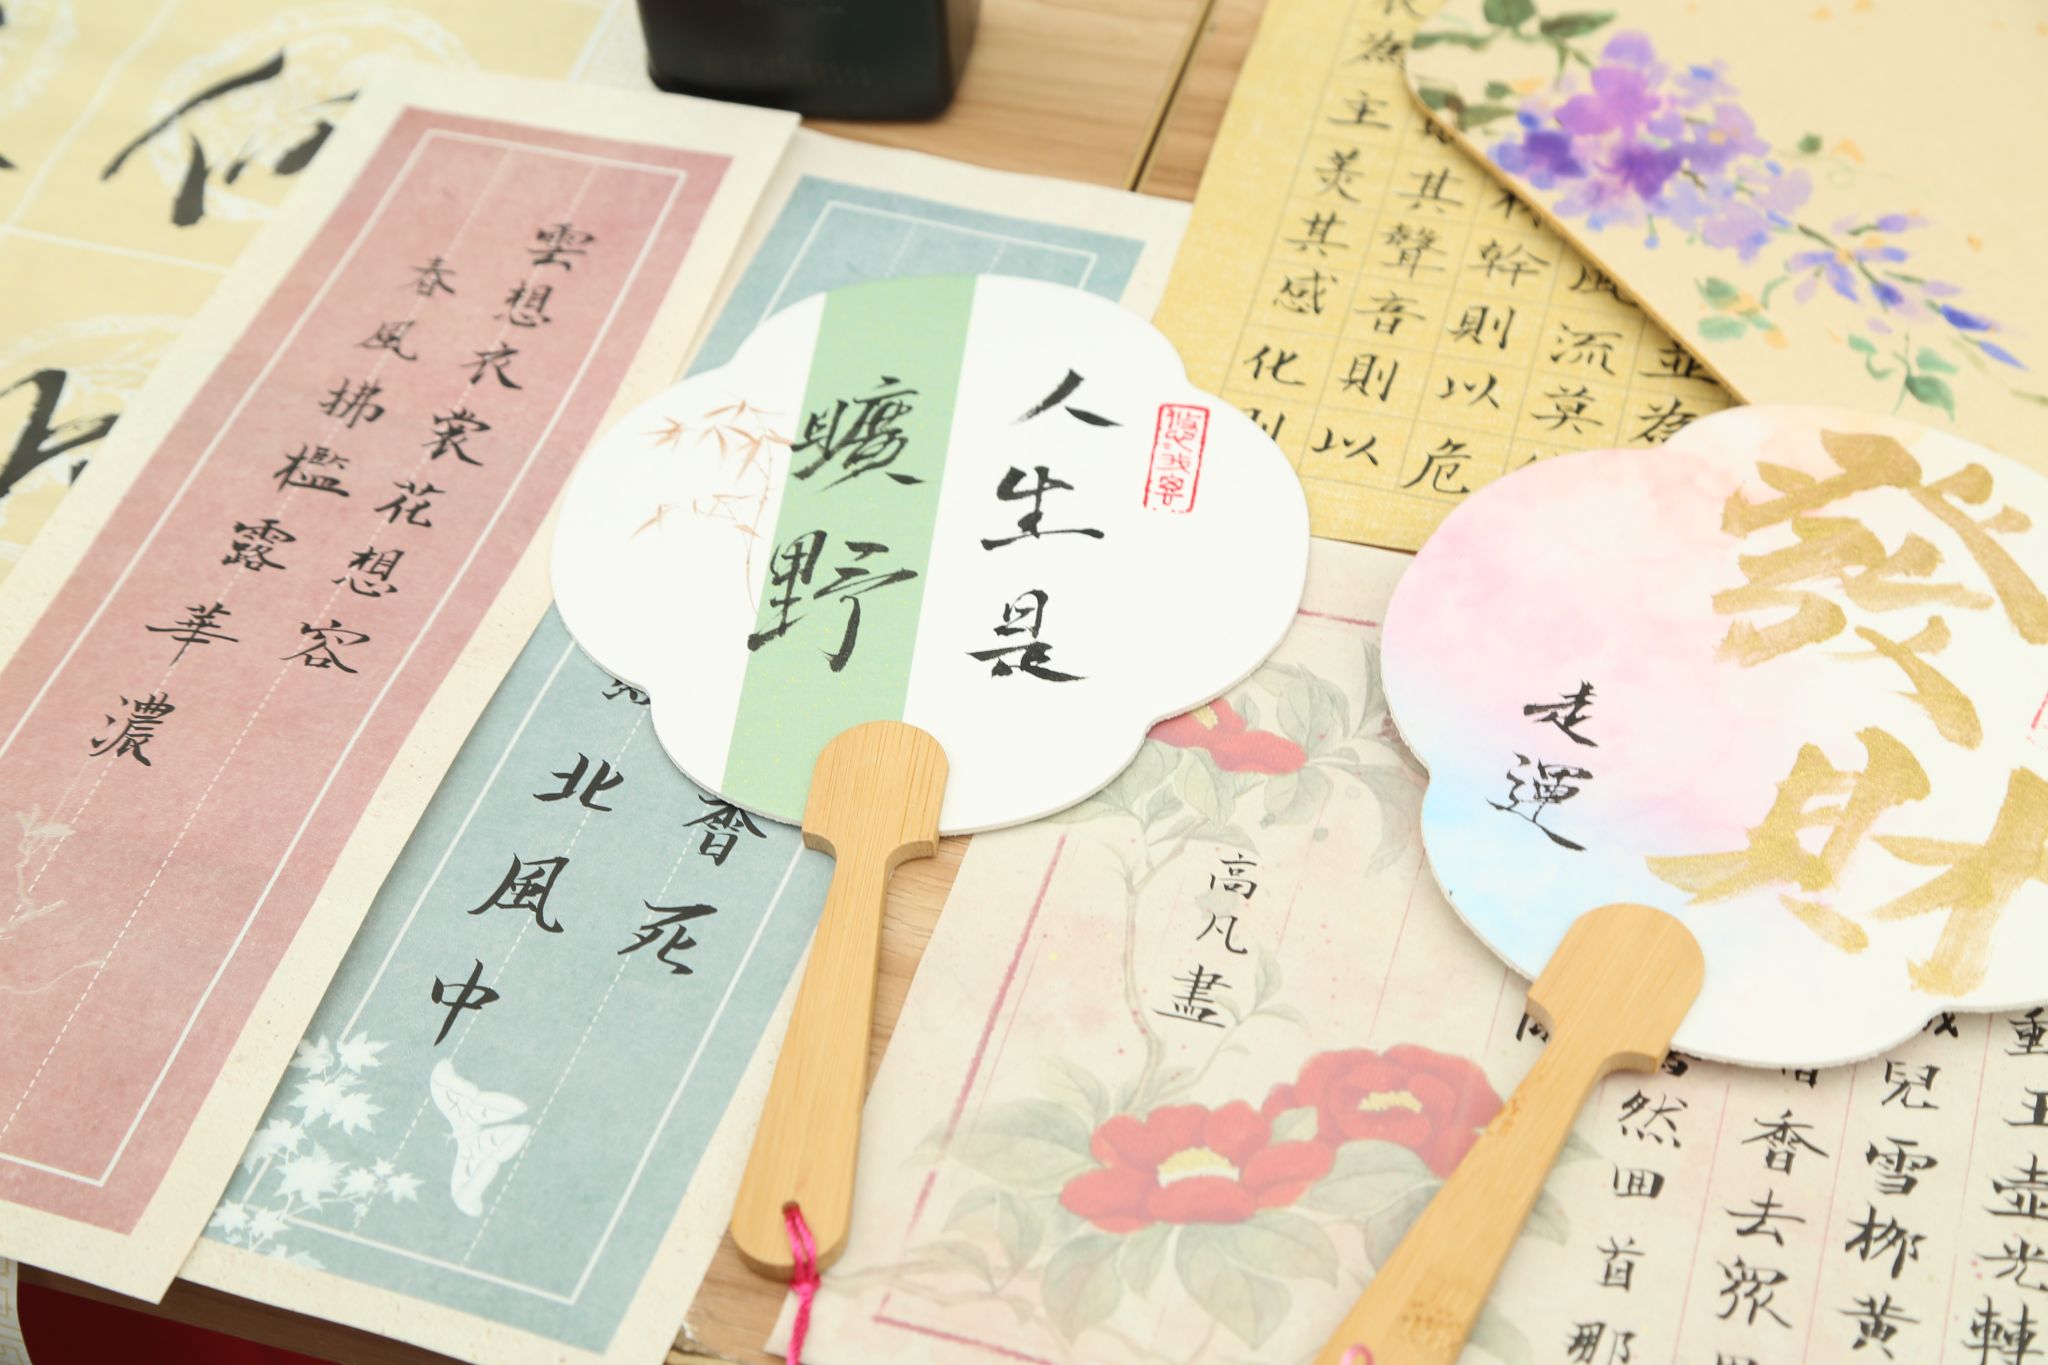 雲想衣裳花想容
春風拂檻露華濃
香死
北風中
人生是
曠野
發財
走運
並為
風流莫
幹則以危
其聲音則以
為主美其感化則
動玉壺光轉
兒雪柳黃
香去眾
然回首那
高凡盡